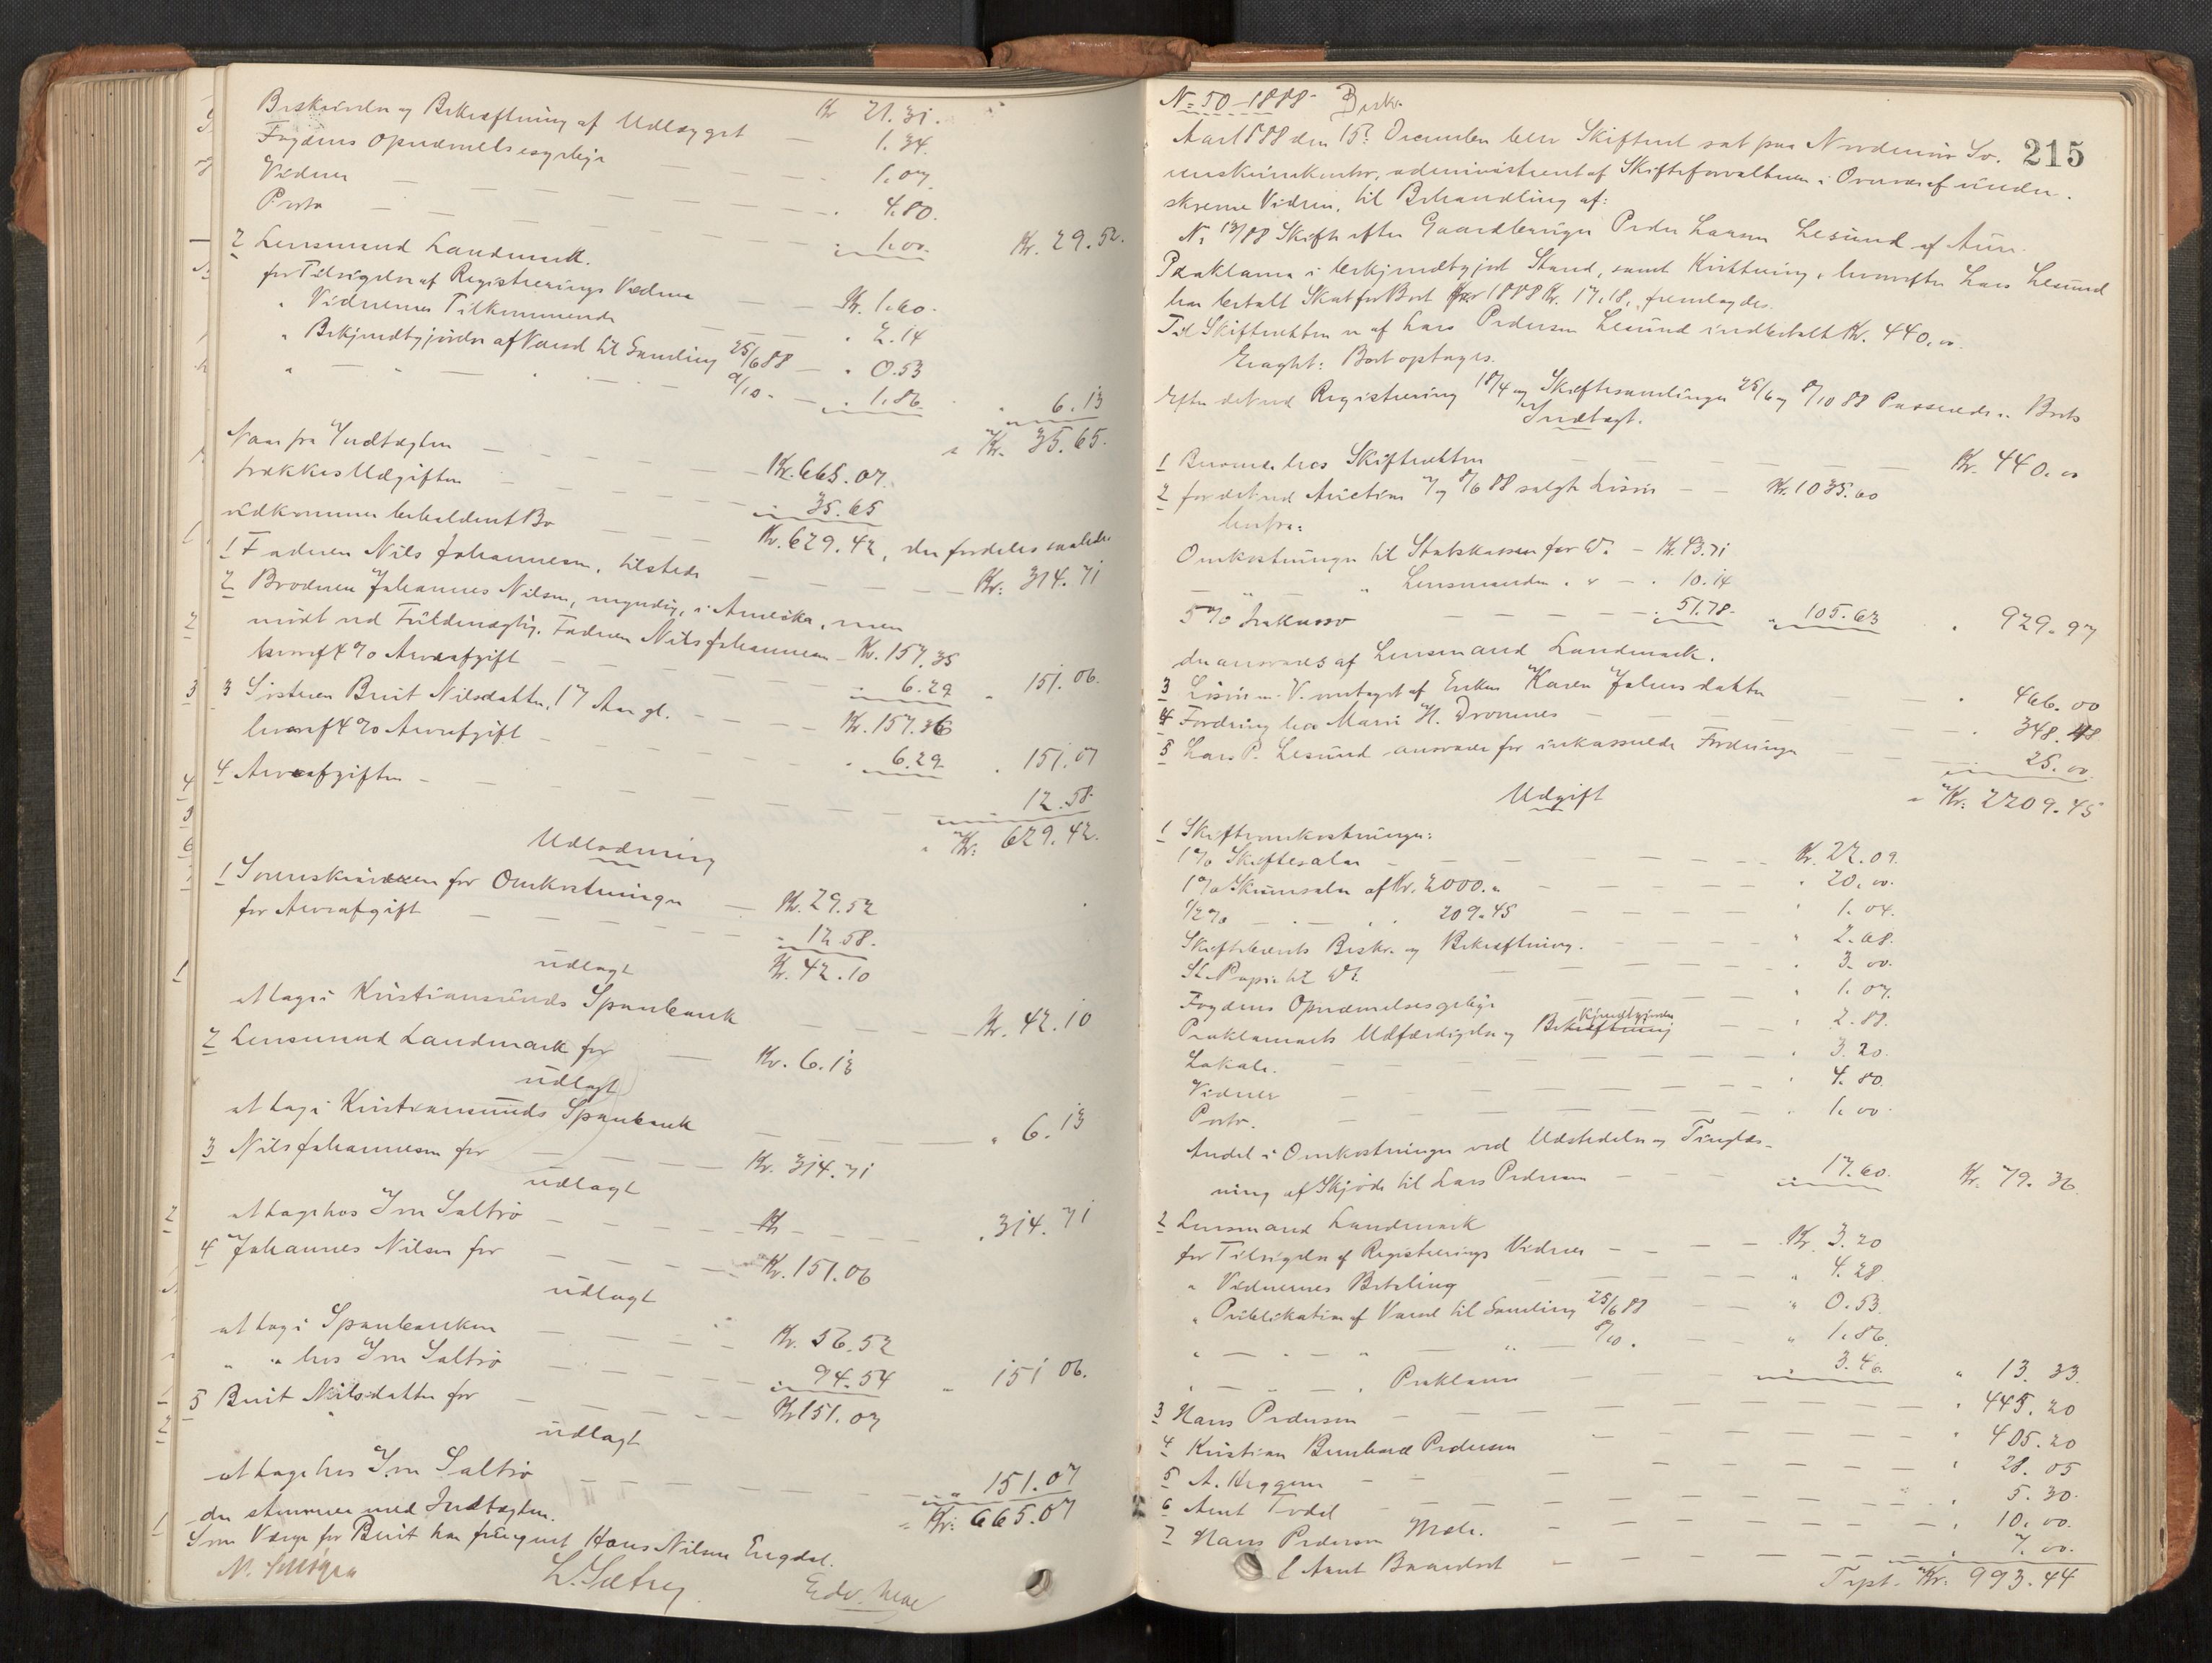 Beskrivelse og Bekræftning af Udlægget — Kr 21.31.
Fogdens Opnævnelsesgebyr — 1.34.
Vidner — 1.07
Porto — 4.80.
1.00. Kr. 29.52.
2 Lensmand Landmark.
for Tilsigelse af Registrerings Vidne — Kr. 1.60.
" Vidnernes Tilkommende — " 2.14
" Bekjendtgjørelse af Varsel til Samling 25/6 88 — " 0.53
" — " — " 8/10 — " 1.86 " 6.13
Kr. 35.65.
Naar fra Indtægten — Kr. 665.07.
trækkes Udgiften — 35.65
udkommer beholdent Bo — Kr. 629.42, der fordeles saaledes
1 Faderen Nils Johannesen, tilstede — Kr. 314.71
2 Broderen Johannes Nilsen, myndig, i Amerika, men
mødt ved Fuldmægtig, Faderen Nils Johannesen — Kr. 157.35
hvoraf 4% Arveafgift — 6.29 " 151.06.
3 Søsteren Berit Nilsdatter, 17 Aar gl. — Kr. 157.36
hvoraf 4% Arveafgift — 6.29 " 151.07
4 Arveafgiften — 12.58
Kr. 629.42.
Udlodning
1 Sorenskriveren for Omkostninger — Kr. 29.52
for Arveafgift — 12.58.
udlagt Kr. 42.10
at tage i Kristiansunds Sparebank — Kr. 42.10
2 Lensmand Landmark for — Kr. 6.13
udlagt
at tage i Kristiansunds Sparebank — " 6.13
3 Nils Johannesen for — Kr. 314.71
udlagt
at tage hos Iver Saltrø — " 314.71
4 Johannes Nilsen for — Kr. 151.06
udlagt
at tage i Sparebanken — Kr. 56.52
" " hos Iver Saltrø — 94.54 " 151.06.
5 Berit Nilsdatter for — Kr 151.07
udlagt
at tage hos Iver Saltrø — " 151.07
der stemmer med Indtægten. Kr. 665.07
Som Værge for Berit har fungeret Hans Nilsen Engdal.
L. Sætrey Edv.
215
No 50 – 1888 – Beskr.
Aar 1888 den 15de December blev Skifteret sat paa Nordmøre So-
renskriverkontor, administreret af Skifteforvalteren i Overvær af under-
skrevne Vidner, til Behandling af:
No 13/88 Skifte efter Gaardbruger Peder Larsen Lesund af Aure.
Proklama i bekjendtgjort Stand, samt Kvittering, hvorefter Lars Lesund
har betalt Skat for Boet for 1888 Kr. 17.18, fremlagdes.
Til Skifteretten er af Lars Pedersen Lesund indbetalt Kr. 440.00.
Eragtet: Boet optages.
Efter det ved Registrering 18/4 og Skiftesamlinger 25/6 og 8/10 88 Passerede er Boets
Indtægt.
1 Beroende hos Skifteretten — Kr. 440.00
2 for det ved Auction 7 og 8/6 88 solgte Løsøre — Kr. 1035.60
herfra:
Omkostninger til Statskassen for Do — Kr. 43.71
" " Lensmanden " " — 10.14
5% Inkasso — 51.78 " 105.63 " 929.97
der ansvares af Lensmand Landmark.
3 Løsøre m. V. modtaget af Enken Karen Johnsdatter — " 466.00
4 Fordring hos Marie H. Dromnes — " 348.48
5 Lars P. Lesund ansvarer for inkasserede Fordringer — 25.00
Kr. 2209.45
Udgift
1 Skifteomkostninger:
1% Skiftesalær — Kr. 22.09.
1% Skriversalær af Kr. 2000.00 — " 20.00.
1/2% — " 209.45 — " 1.04.
Skiftebrevets Beskr. og Bekræftning. — " 2.68.
St. Papir til Do. — " 3.00.
Fogdens Opnævnelsesgebyr — " 1.07.
Proklamaets Udfærdigelse og Bekjendtgjørelse — " 2.88.
Lokale. — " 3.20.
Vidner — " 4.80.
Porto. — " 1.00.
Andel i Omkostninger ved Udstedelse og Tinglæs-
ning af Skjøde til Lars Pedersen — 17.60. Kr. 79.36
2 Lensmand Landmark
for Tilsigelse af Registrerings Vidner — Kr. 3.20
" Vidnernes Betaling — " 4.28
" Publikation af Varsel til Samling 25/6 88 — " 0.53.
" — " — " 8/10. — " 1.86.
" — " Proklama — 3.46. " 13.33.
3 Hans Pedersen — " 445.20
4 Kristian Bernhard Pedersen — " 405.20
5 A. Heggem — " 28.05
6 Arnt Todal — 5.30.
7 Hans Pedersen Mele. — " 10.00.
8 Arnt Baardset — 7.00.
Trpt. Kr. 993.44